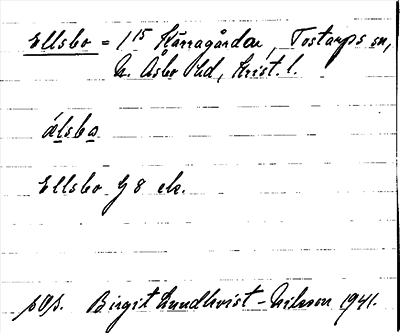 Ellsbo = 1/15 Kärragården, Tostarps sn,
N. Åsbo hd, Krist. l.
álsbo
Ellsbo G 8 ek.
Birgit Lundkvist-Nilsson 1941.